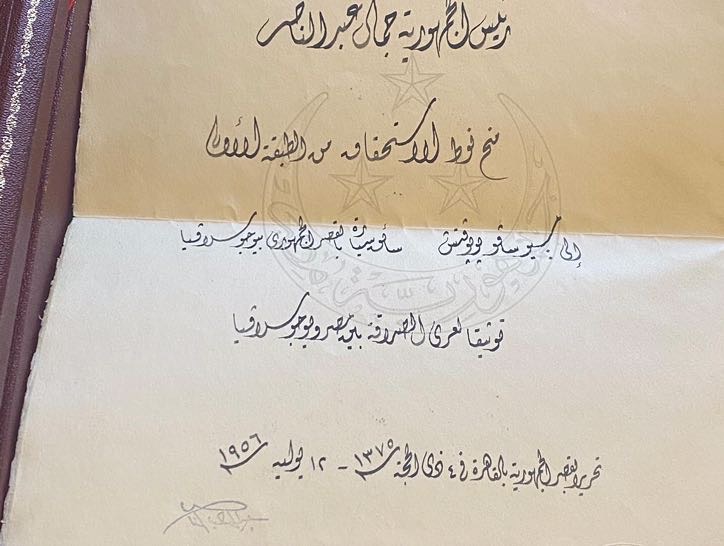 رئيس الجمهورية جمال عبد الناصر
منح نوط الاستحقاق من الطبقة الأولى
إلى سيو سافو پوپوڤتش سائق سيارة بالقصر الجمهوري بيوجوسلاڤيا
توثيقا لعرى الصداقة بين مصر ويوجوسلاڤيا
تحريرا بقصر الجمهورية بالقاهرة في ٤ ذى الحجة ١٣٧٥ - ١٢ يوليه ١٩٥٦